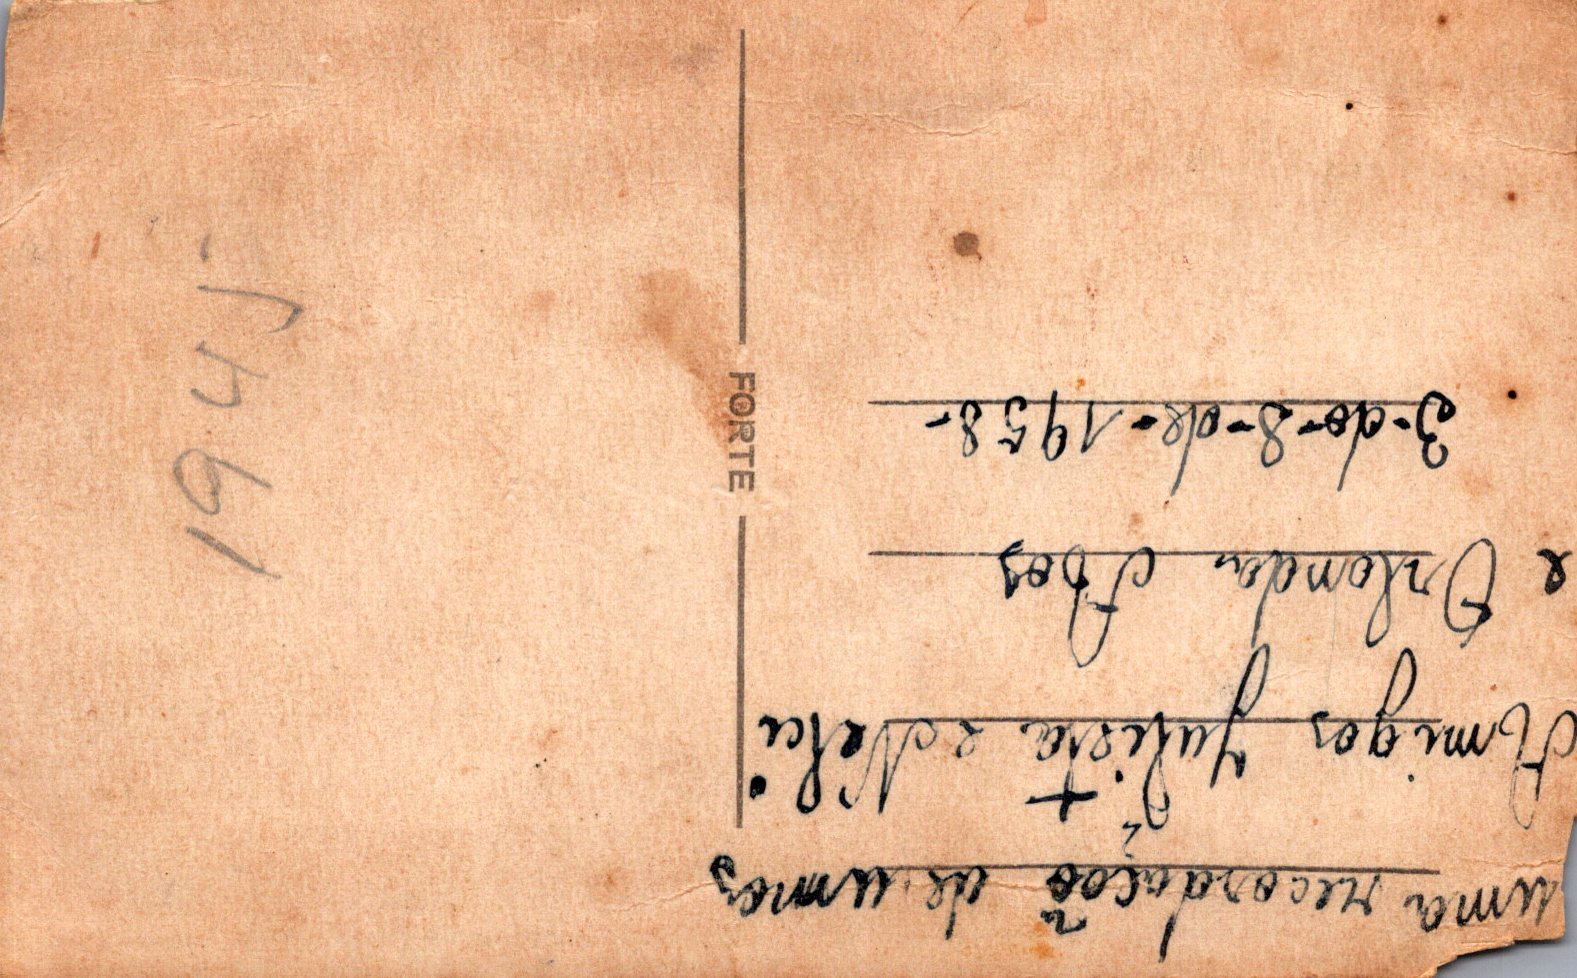 uma recordacoõ de umas
Amigas Julieta e Neli
e Orlanda
3-do-8-de-1958-
FORTE
194